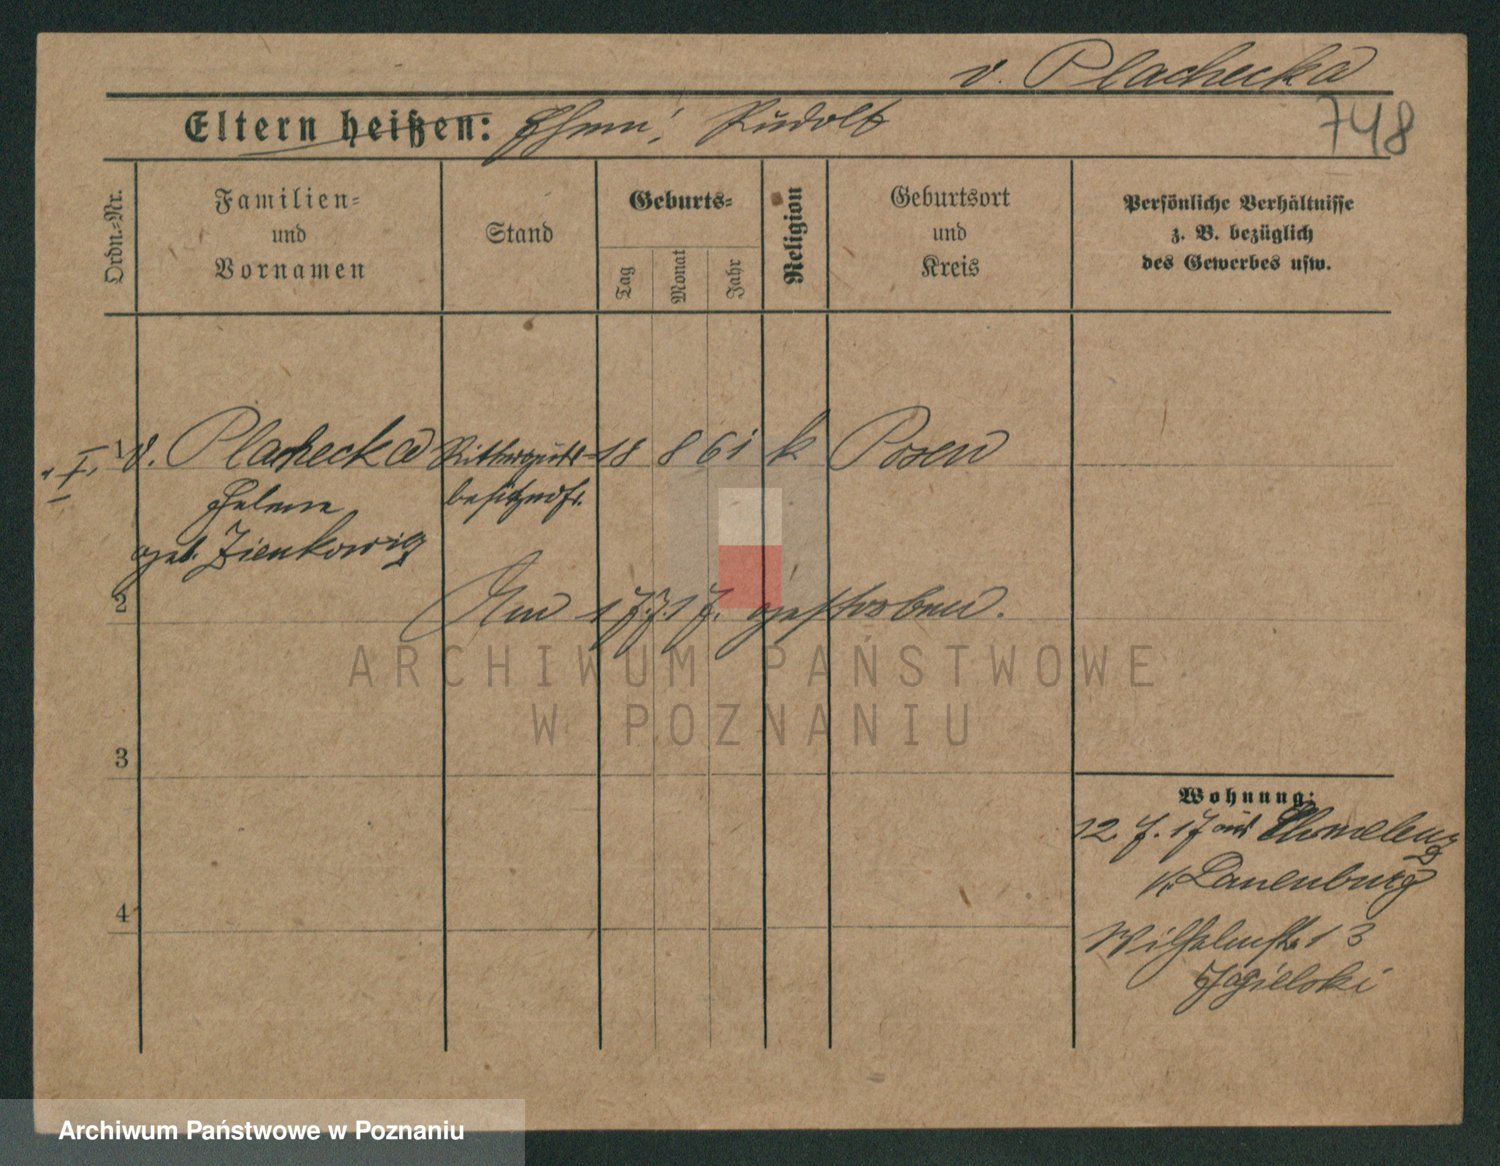 v. Plachecka
Eltern heißen: Ehem: Rudolf
748
Ordn.-Nr.
Familien-
und
Vornamen
Stand
Geburts-
Tag
Monat
Jahr
Religion
Geburtsort
und
Kreis
Persönliche Verhältnisse
z. B. bezüglich
des Gewerbes usw.
1 v. Plachecka Ritterguts- 18 8 61 k Posen
Helene besitzerfr.
geb. Zienkowicz
2
Am 17.7.17. gestorben.
ARCHIWUM PAŃSTWOWE
W POZNANIU
3
4
Wohnung:
12 7. 17 aus
Wilhelmstr. 13
Archiwum Państwowe w Poznaniu